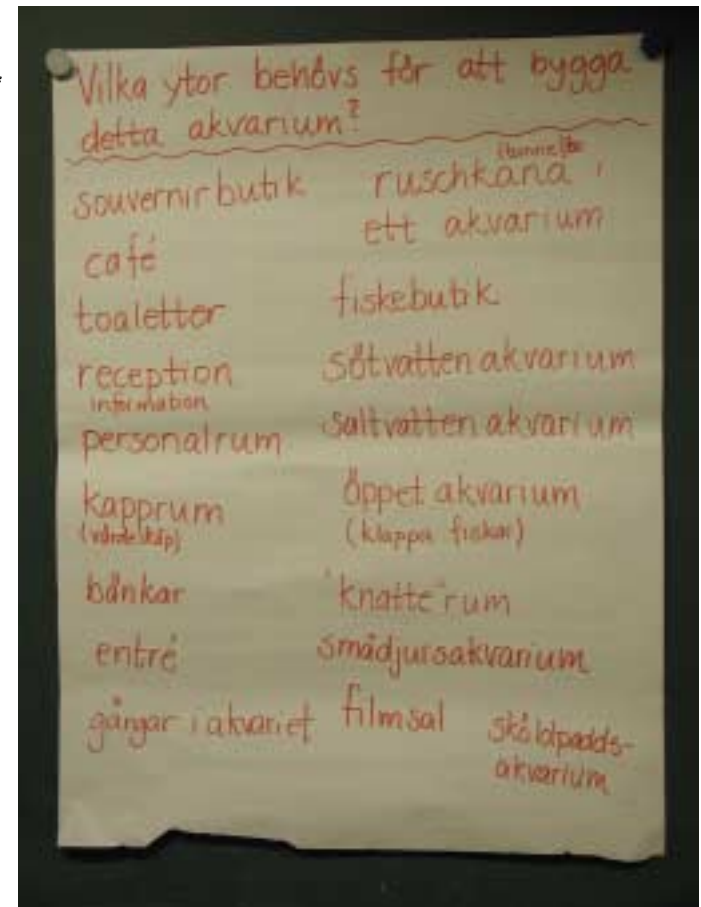 Vilka ytor behövs för att bygga
detta akvarium?
souvernirbutik
café
toaletter
reception
information
personalrum
kapprum
(värdeskåp)
bänkar
entré
gångar i akvariet
ruschkana i
ett akvarium
fiskebutik
sötvattenakvarium
saltvattenakvarium
öppet akvarium
(klappa fiskar)
"knatte"rum
smådjursakvarium
filmsal
sköldpadds-
akvarium